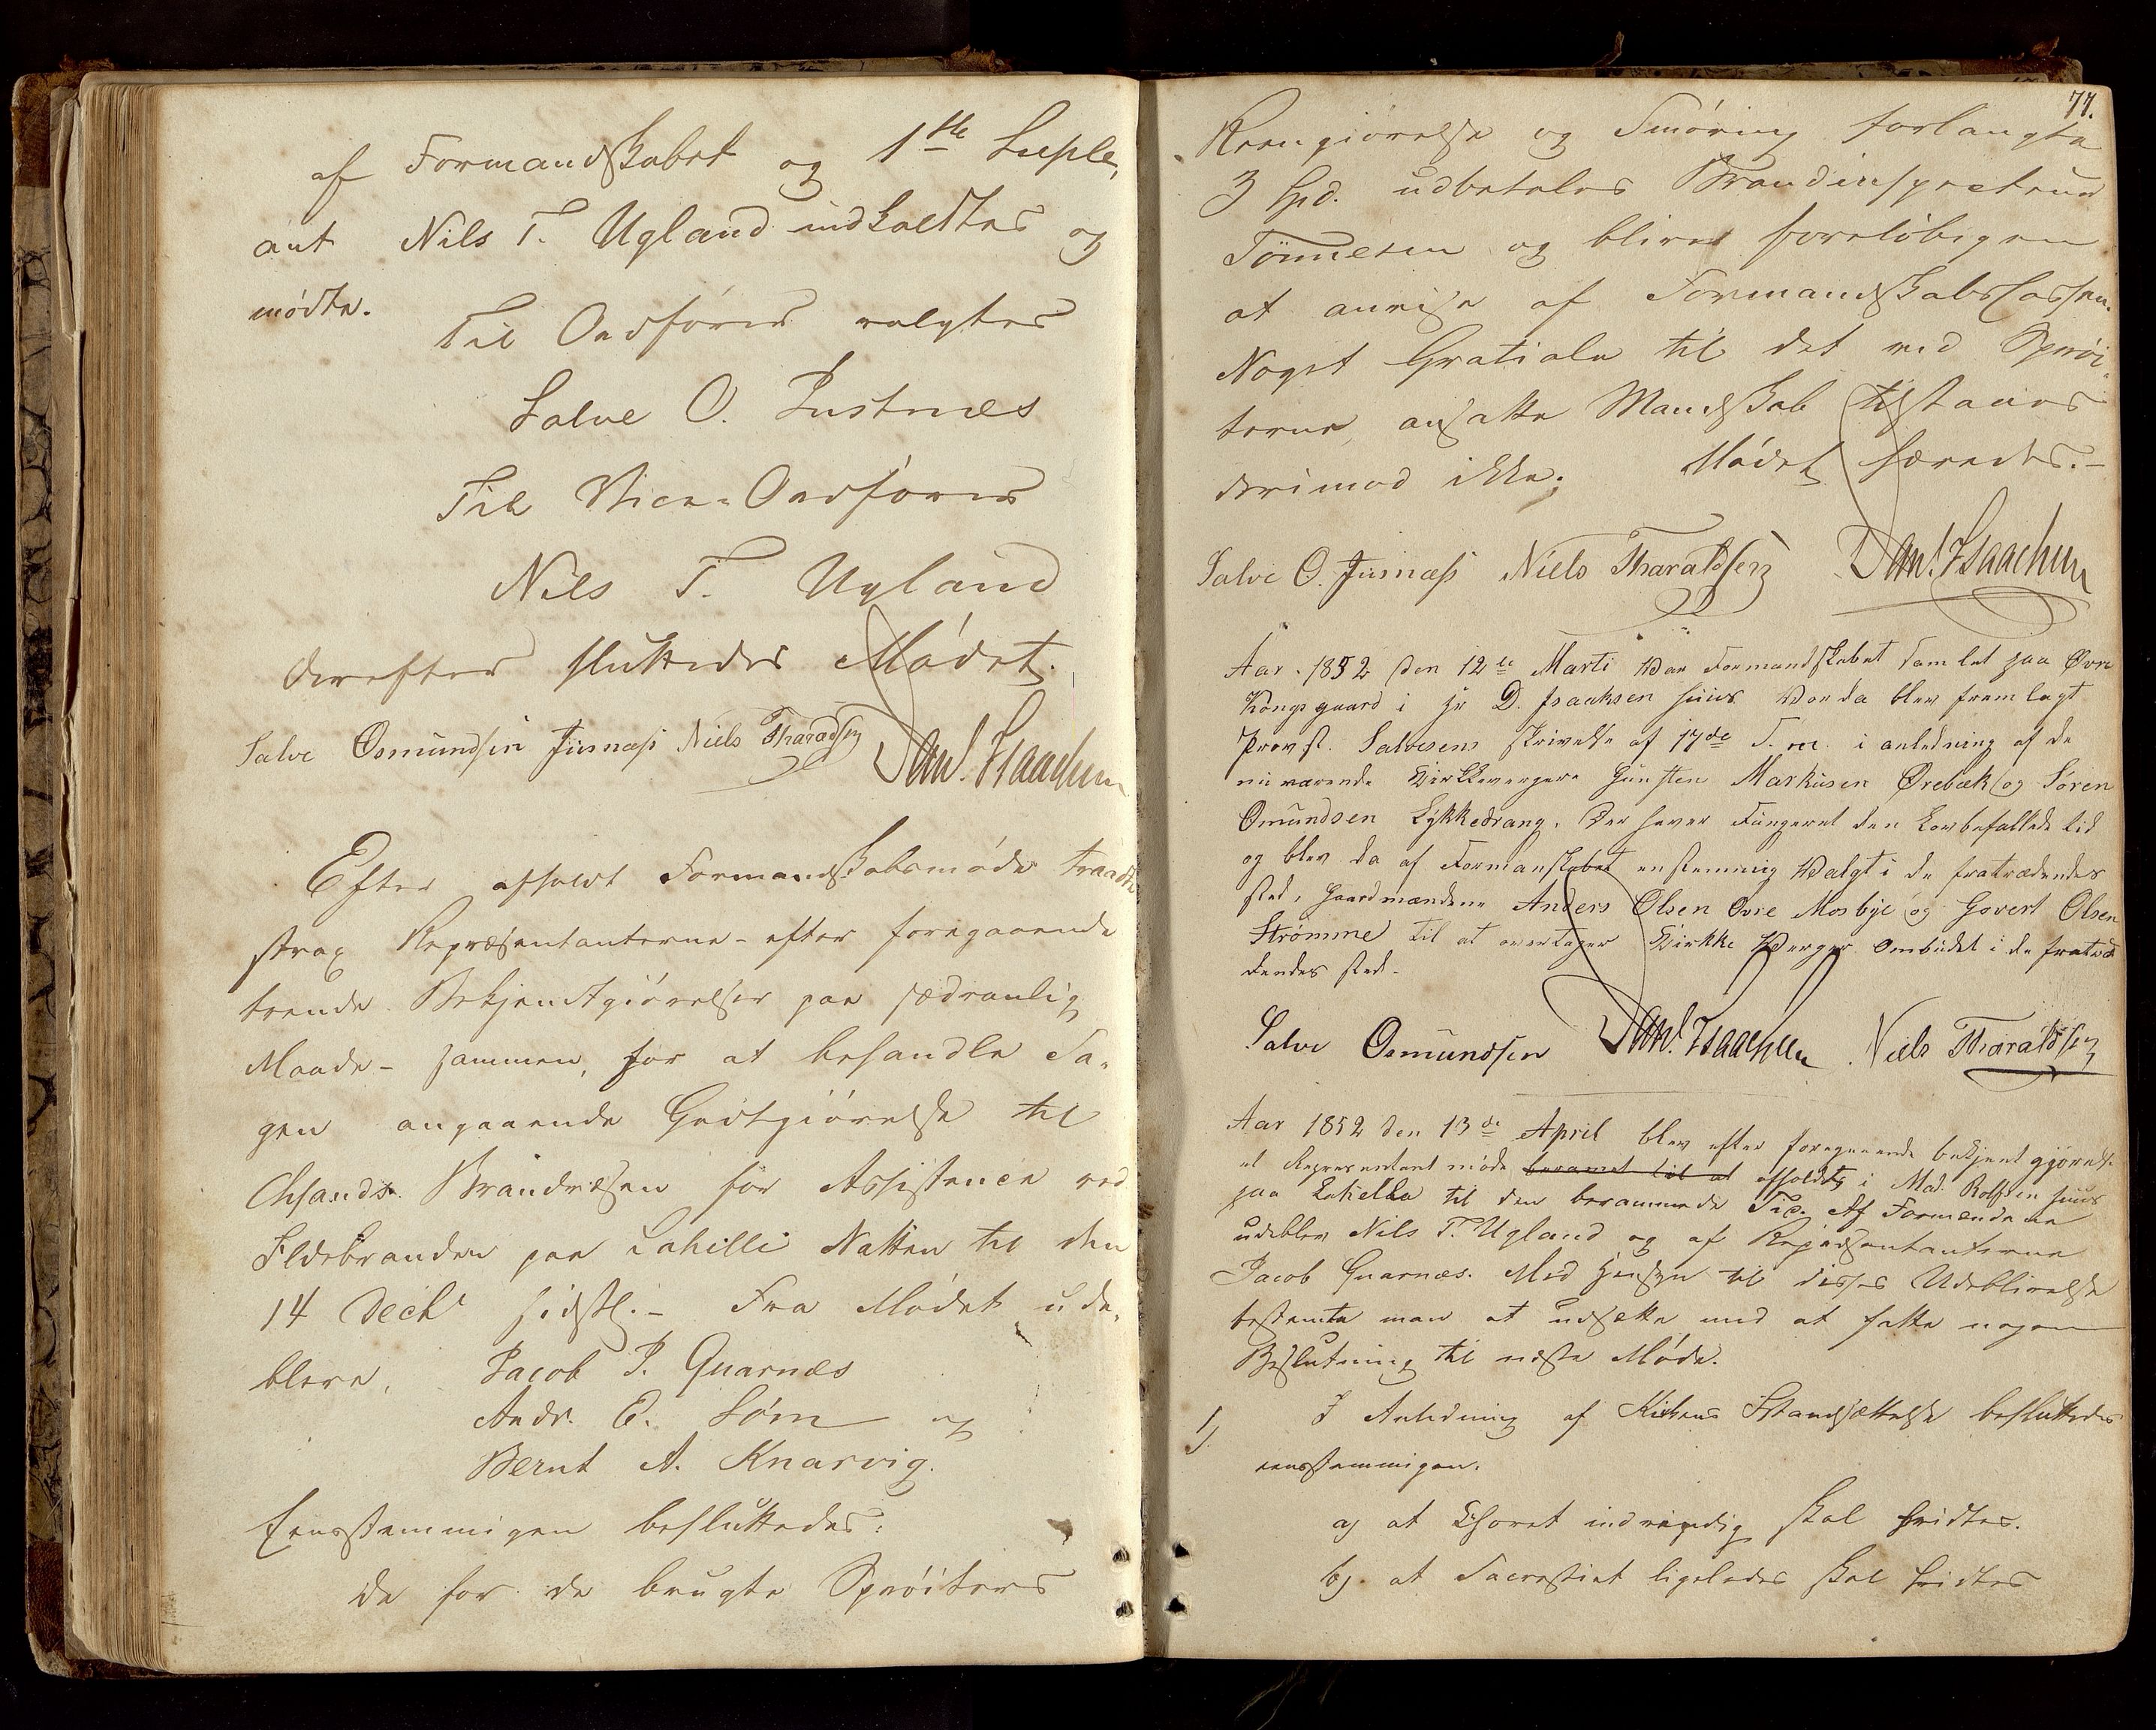 af Formandskabet og 1ste Suple,
ant Nils T. Ugland indkaldtes og
mödte.
Til Ordförer valgtes
Salve O. Justnæs
Til Vice-Ordförer
Nils T. Ugland
derefter sluttedes Mödet.
Salve Osmundsen Jusnæs Niels Tharaldsen Danl. Isaachsen
Efter afholdt Formandskabsmöde traadte
strax Repræsentanterne - efter foregaaende
Bekjendtgiörelser paa sædvanlig
Maade - sammen, for at behandle Sa-
gen angaaende Godtgiörelse til
Chsands. Brandvæsen for Assistence ved
Ildebranden paa Lahilli Natten til den
14 Decbr sidstl. - Fra Mödet ude-
bleve, Jacob J. Quarnæs
Andr. E. Söm og
Bernt A. Knarvig.
Eensstemmigen besluttedes:
De for de brugte Spröiters
77.
Reengiörelse og Smöring forlangte
3 Spd. udbetales Brandinspecteur
Tönnesen og bliver forelöbigen
at anvise af Formandskabscassen.
Noget Gratiale til det ved Spröi-
terne ansatte Mandskab tilstaaes
derimod ikke. Mödet hævedes. -
Salve O. Jusnæs Niels Tharaldsen Danl. Isaachsen
Aar 1852 den 12te Marti Var Formandskabet Samlet paa Øvre
Kongsgaard i Hr D. Isaaksen huus Vor da blev fremlagt
Provst. Salvesens skrivelse af 17de F. m. i anledning af de
nuværende Kirkkevergere Gunsten Markusen Ørebæk og Søren
Omundsen Lykkedrang, Der haver Fungeret den Lovbefallede tid
og blev da af Formanskabet enstemmig Valgt i de fratrædendes
sted, Gaardmændene Anders Olsen Øvre Mosbye og Govert Olsen
Strømme til at overtager Kirkke Verger Ombudet i de fratræ
dendes sted.
Salve Osmundsen Danl. Isaachsen Niels Tharaldsen
Aar 1852 den 13de April blev efter foregaaende bekjentgjörelse
et Representant möde beramet til at afholdt i Mad. Rolfsen huus
paa Lahella til den berammede Tid. Af Formændene
udeblev Nils T. Ugland og af Repræsentanterne
Jacob Quarnæs. Med Hensyn til disses Udeblivelse
bestemte man at udsætte med at fatte nogen
Beslutning til næste Möde.
1) I Anledning af Kirkens Istandsættelse besluttedes
eensstemmigen.
a) at Choret indvendig skal hvidtes.
b) at Sacrestiet ligeledes skal hvidtes